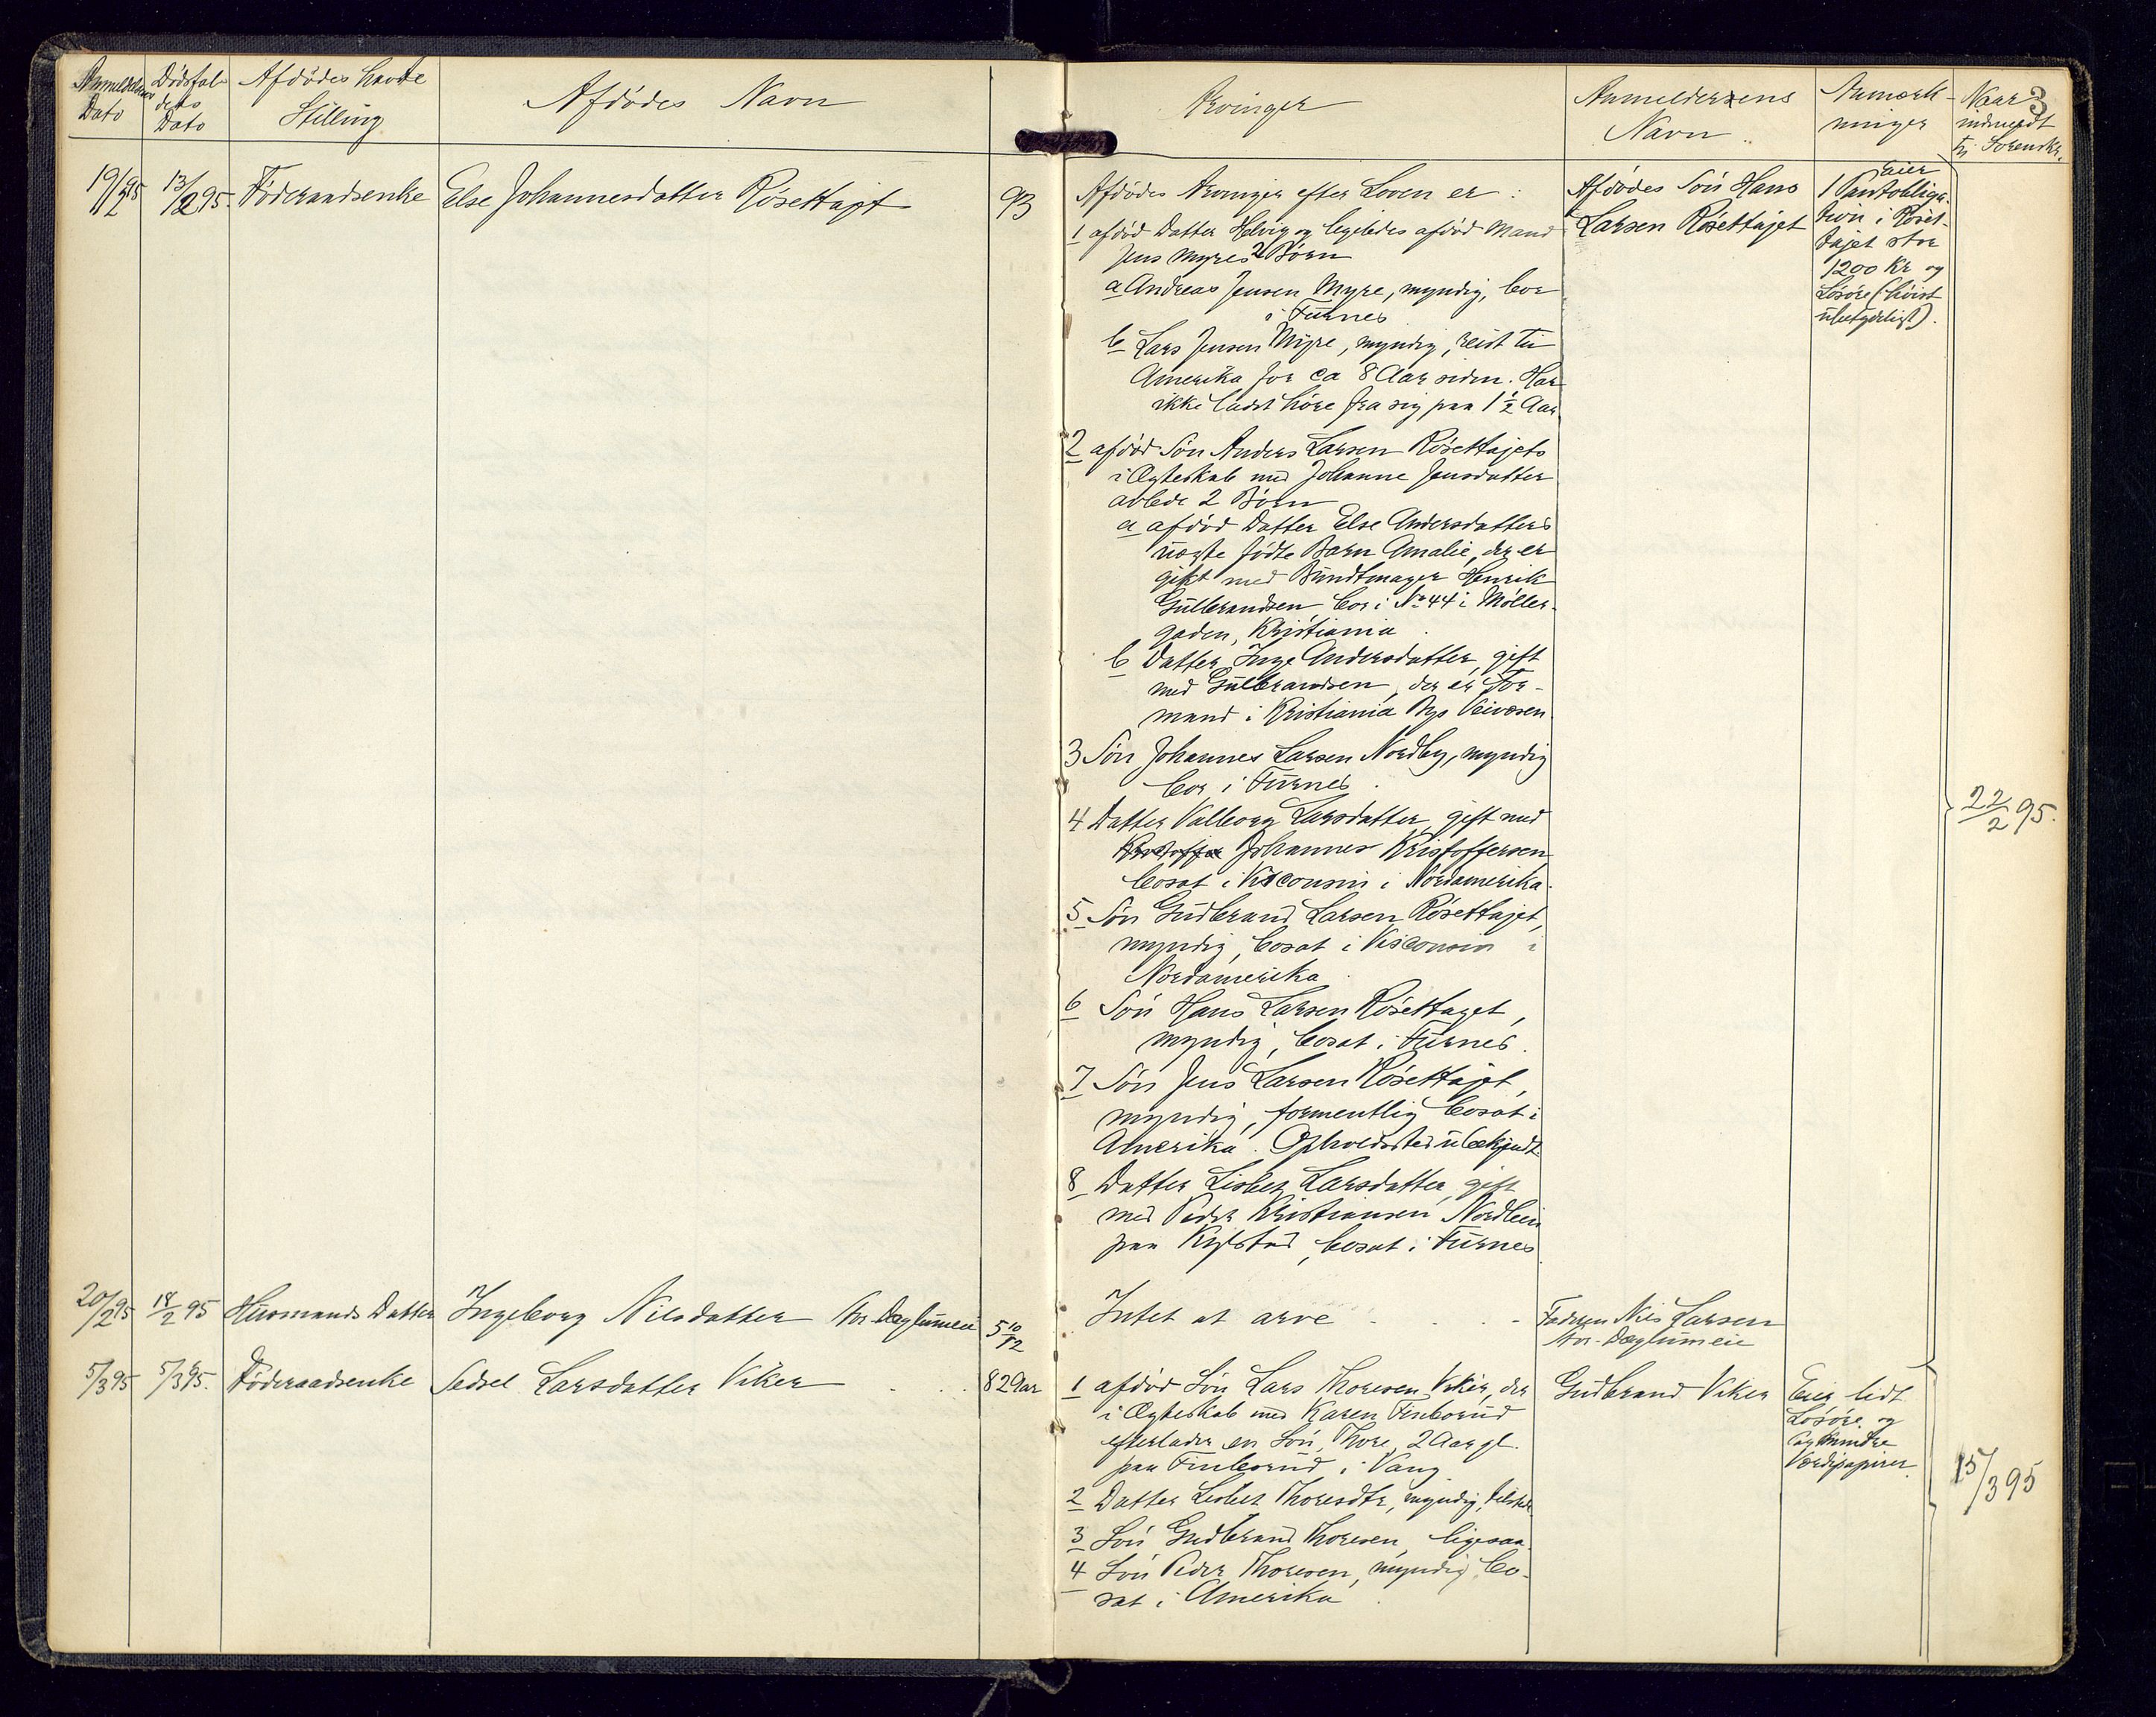 Anmeldelsens Dato
Dödsfaldets Dato
Afdödes havde Stilling
Afdödes Navn
Arvinger
Anmelderens Navn
Anmærkninger
Naar indmeldt til Sorenskr.
3
19/2 95
13/2 95.
Föderaadsenke
Else Johannesdatter Rösettajet
93
Afdödes Arvinger efter Loven er :
1 afdöd Datter Helvig og ligeledes afdöd Mand
Jens Myres 2 Börn
a Andreas Jensen Myre, myndig, bor
i Furnes
b Lars Jensen Myre, myndig, reist til
Amerika for ca 8 Aar siden. Har
ikke ladet höre fra sig paa 1½ Aar.
2 afdöd Sön Anders Larsen Rösettajets
i Ægteskab med Johanne Jensdatter
avlede 2 Börn
a afdöd Datter Else Andersdatters
uægte födte Barn Amalie, der er
gift med Bundtmager Henrik
Gulbrandsen, bor i No 44 i Möller-
gaden, Kristiania.
b Datter Inge Andersdatter, gift
med Gulbrandsen, der er For-
mand i Kristiania Bys Veivæsen
3 Sön Johannes Larsen Nordby, myndig
bor i Furnes.
4 Datter Valborg Larsdatter, gift med
Kristoffer Johannes Kristoffersen,
bosat i Visconsin i Nordamerika.
5 Sön Gudbrand Larsen Rösettajet,
myndig, bosat i Visconsin i
Nordamerika.
6 Sön Hans Larsen Rösettaget,
myndig, bosat i Furnes.
7 Sön Jens Larsen Rösettajet,
myndig, formentlig bosat i
Amerika. Opholdssted ubekjendt
8 Datter Lisbet Larsdatter, gift
med Peder Kristiansen Nordlien
paa Kylstad, bosat i Furnes
Afdödes Sön Hans
Larsen Rösettajet
Eier
1 Pantobliga-
tion i Röset-
tajet stor
1200 Kr og
Lösöre (höist
ubetydeligt).
22/2 95.
20/2 95
18/2 95
Husmands Datter
Ingeborg Nilsdatter Nor-Dæglumeie
5 10/12
Intet at arve
Faderen Nils Larsen
Nor-Dæglumeie
5/3 95
5/3 95.
Föderaadsenke
Sedsel Larsdatter Viker
82 Aar
1 afdöd Sön Lars Thoresen Viker, der
i Ægteskab med Karen Finborud
efterlader en Sön, Thore, 2 Aar gl.
paa Finborud i Vang
2 Datter Lisbet Thoresdtr, myndig,
3 Sön Gudbrand Thoresen, ligesaa
4 Sön Peder Thoresen, myndig, bo-
sat i Amerika.
Gudbrand Viker
Eier lidt
Lösöre og
og mindre
Værdipapirer.
15/3 95